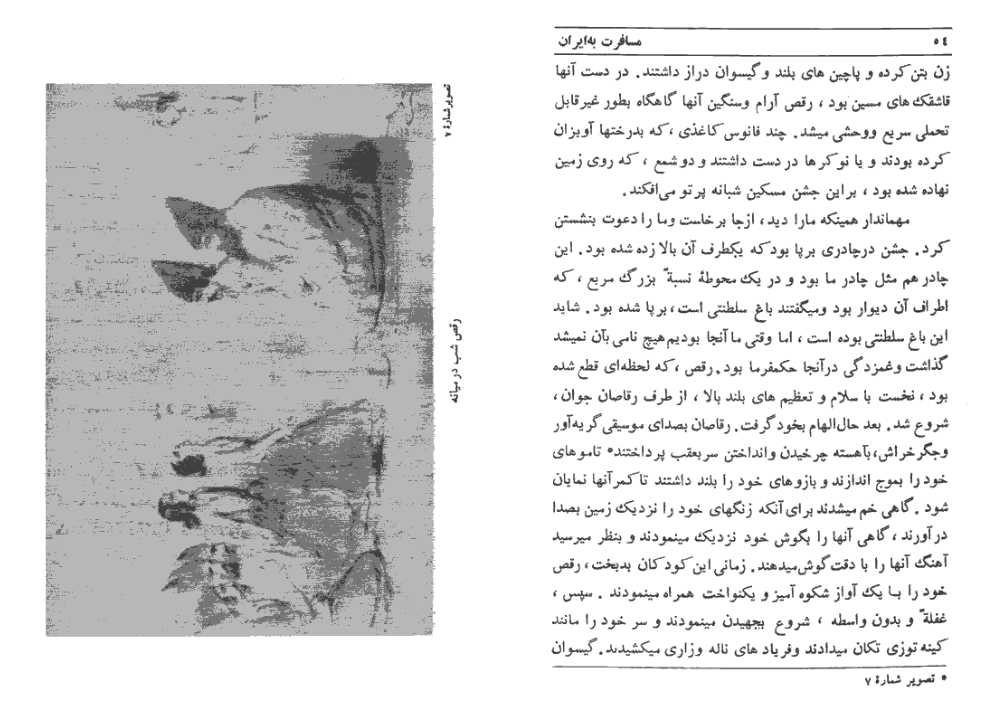 ٥٤ مسافرت به‌ایران
زن بتن کرده و پاچین های بلند و گیسوان دراز داشتند. در دست آنها
قاشقک های مسین بود، رقص آرام وسنگین آنها گاهگاه بطور غیرقابل
تحملی سریع ووحشی میشد. چند فانوس کاغذی، که بدرختها آویزان
کرده بودند و یا نوکرها در دست داشتند و دو شمع، که روی زمین
نهاده شده بود، براین جشن مسکین شبانه پرتو می‌افکند.
مهماندار همینکه مارا دید، ازجا برخاست وما را دعوت بنشستن
کرد. جشن درچادری برپا بود که یکطرف آن بالا زده شده بود. این
چادر هم مثل چادر ما بود و در یک محوطهٔ نسبةً بزرگ مربع، که
اطراف آن دیوار بود ومیگفتند باغ سلطنتی است، برپا شده بود. شاید
این باغ سلطنتی بوده است، اما وقتی ما آنجا بودیم هیچ نامی بآن نمیشد
گذاشت وغمزدگی درآنجا حکمفرما بود. رقص، که لحظه‌ای قطع شده
بود، نخست با سلام و تعظیم های بلند بالا، از طرف رقاصان جوان،
شروع شد. بعد حال‌الهام بخود گرفت. رقاصان بصدای موسیقی گریه‌آور
وجگرخراش، بآهسته چرخیدن وانداختن سربعقب پرداختند• تاموهای
خود را بموج اندازند و بازوهای خود را بلند داشتند تا کمر آنها نمایان
شود. گاهی خم میشدند برای آنکه زنگهای خود را نزدیک زمین بصدا
درآورند، گاهی آنها را بگوش خود نزدیک مینمودند و بنظر میرسید
آهنگ آنها را با دقت گوش میدهند. زمانی این کودکان بدبخت، رقص
خود را با یک آواز شکوه آمیز و یکنواخت همراه مینمودند. سپس،
غفلةً و بدون واسطه، شروع بجهیدن مینمودند و سر خود را مانند
کینه توزی تکان میدادند وفریاد های ناله وزاری میکشیدند. گیسوان
• تصویر شمارهٔ ۷
تصویر شمارهٔ ۷
رقص شب در میانه